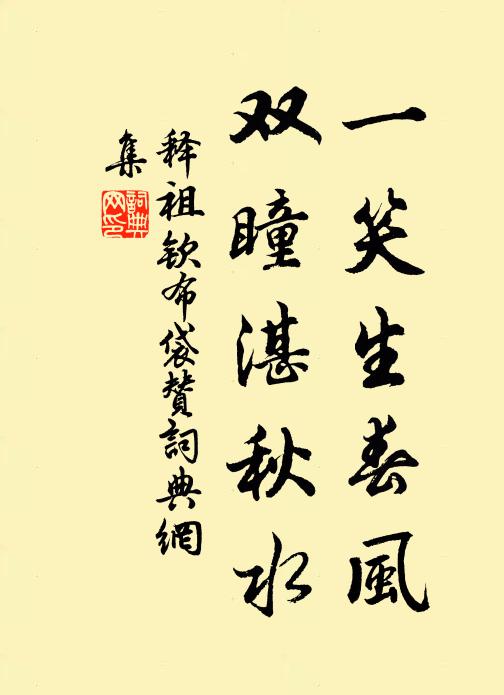 一笑生春風
双瞳湛秋水
释祖欽布袋赞詞典網
集
詞典
网印